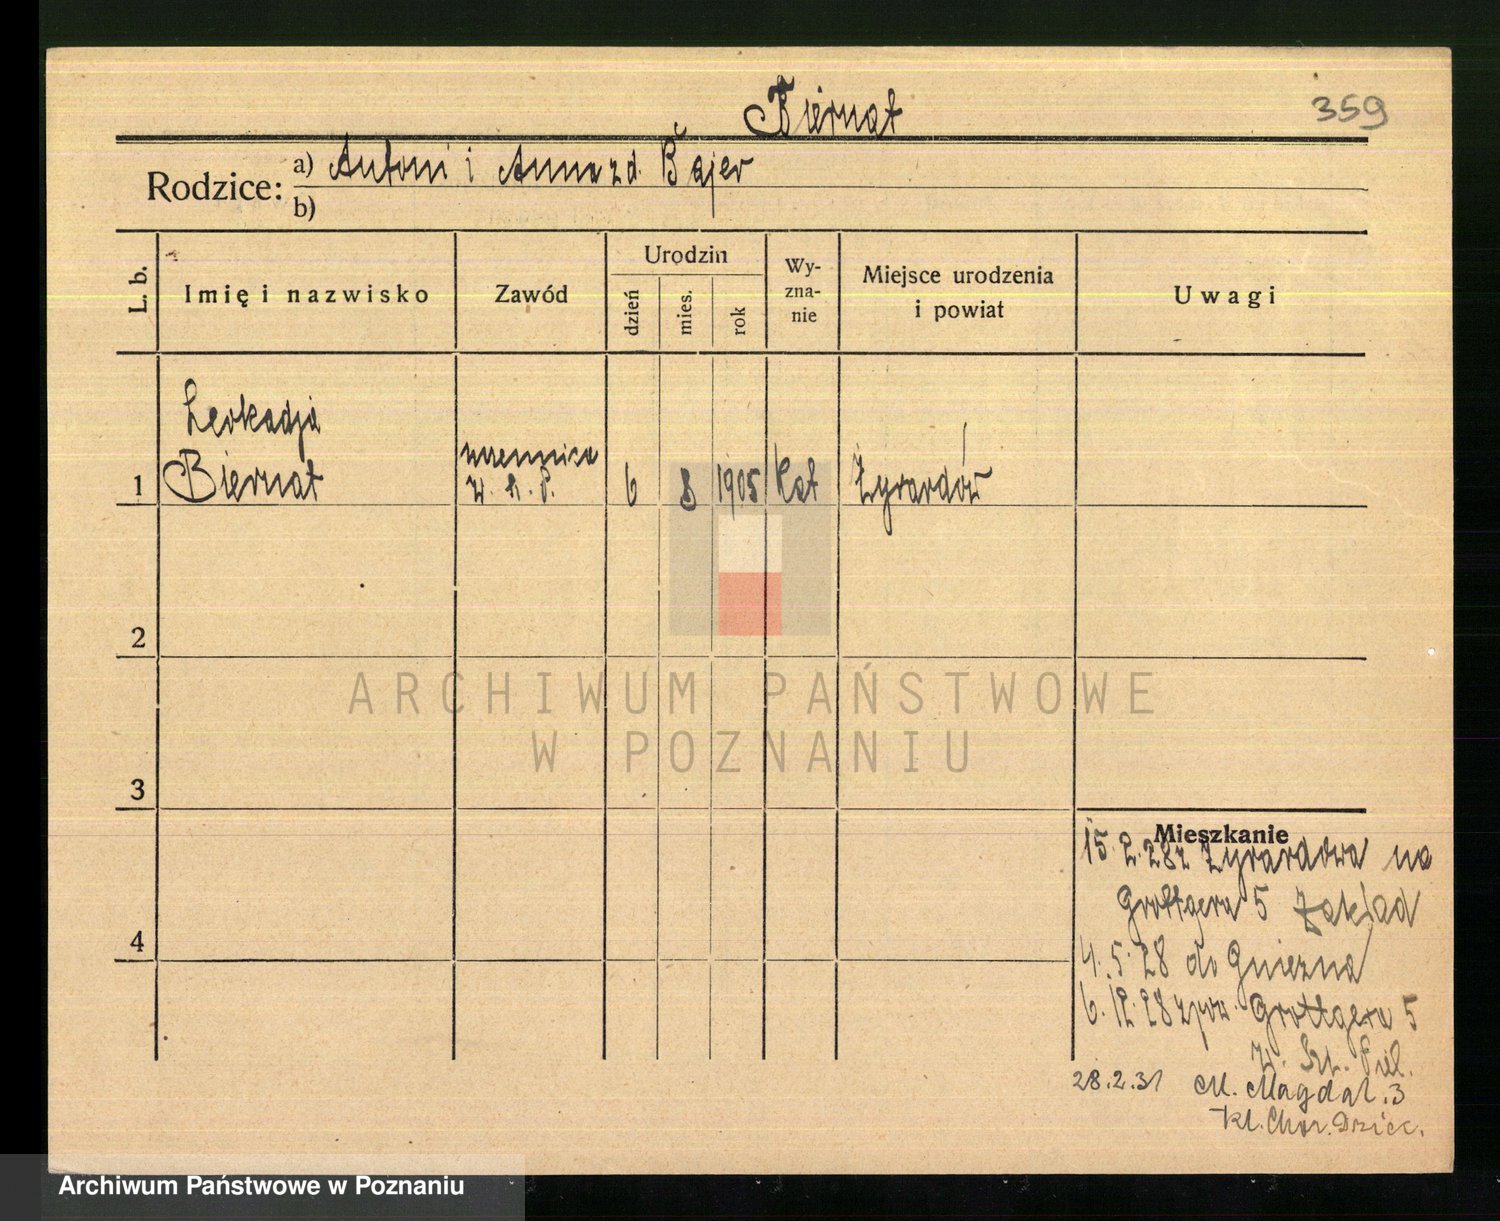 Biernat
359
Rodzice: a) Antoni i Anna zd. Bajer
b)
L. b.
Imię i nazwisko
Zawód
Urodzin
dzień
mies.
rok
Wy-
zna-
nie
Miejsce urodzenia
i powiat
Uwagi
Leokadja
1 Biernat
uczennica
W. S. P.
6 8 1905 Kat Żyrardów
2
3
4
Mieszkanie
15. 2. 28 z Żyrardowa na
Grottgera 5 Zakład
4. 5. 28 do Gniezna
6. 12. 28 zpow. Grottgera 5
W. Szk. Piel.
28.2.31 M. Magdal. 3
Kl. Chor. Dziec.
ARCHIWUM PAŃSTWOWE
W POZNANIU
Archiwum Państwowe w Poznaniu